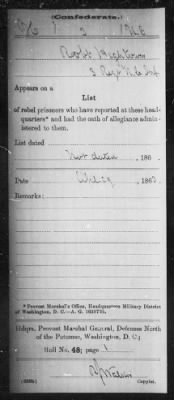 (Confederate.)
3 N.C.
Robt Hightower
3 Regt N.C. Inf.
Appears on a
List
of rebel prisoners who have reported at these head-
quarters* and had the oath of allegiance admin-
istered to them.
List dated
Not dated, 186 .
Date 186
Remarks:
* Provost Marshal's Office, Headquarters Military District
of Washington, D. C.—A. G.
Hdqrs. Provost Marshal General, Defenses North
of the Potomac, Washington, D. C.;
Roll No. 48; page 1
Copyist.